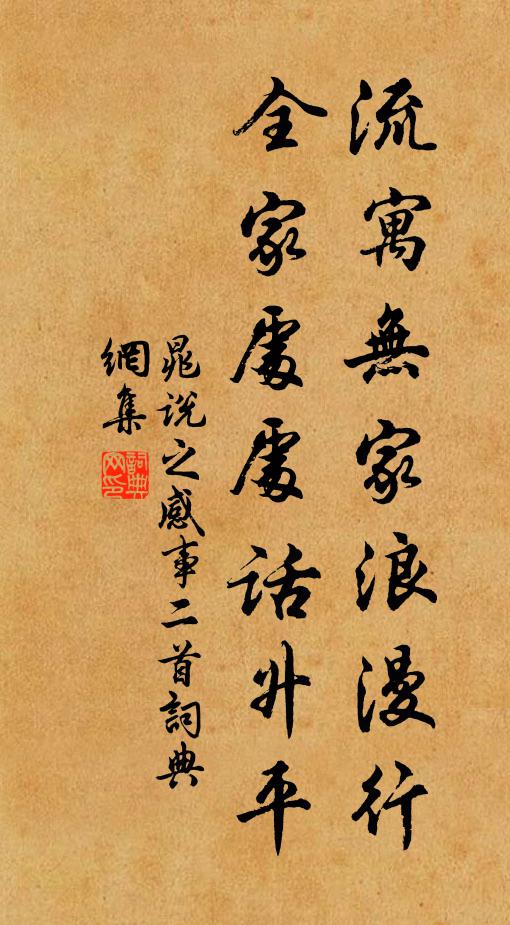 流寓無家浪漫行
全家處處話升平
晁説之感事二首詞典
網集
詞典
网印